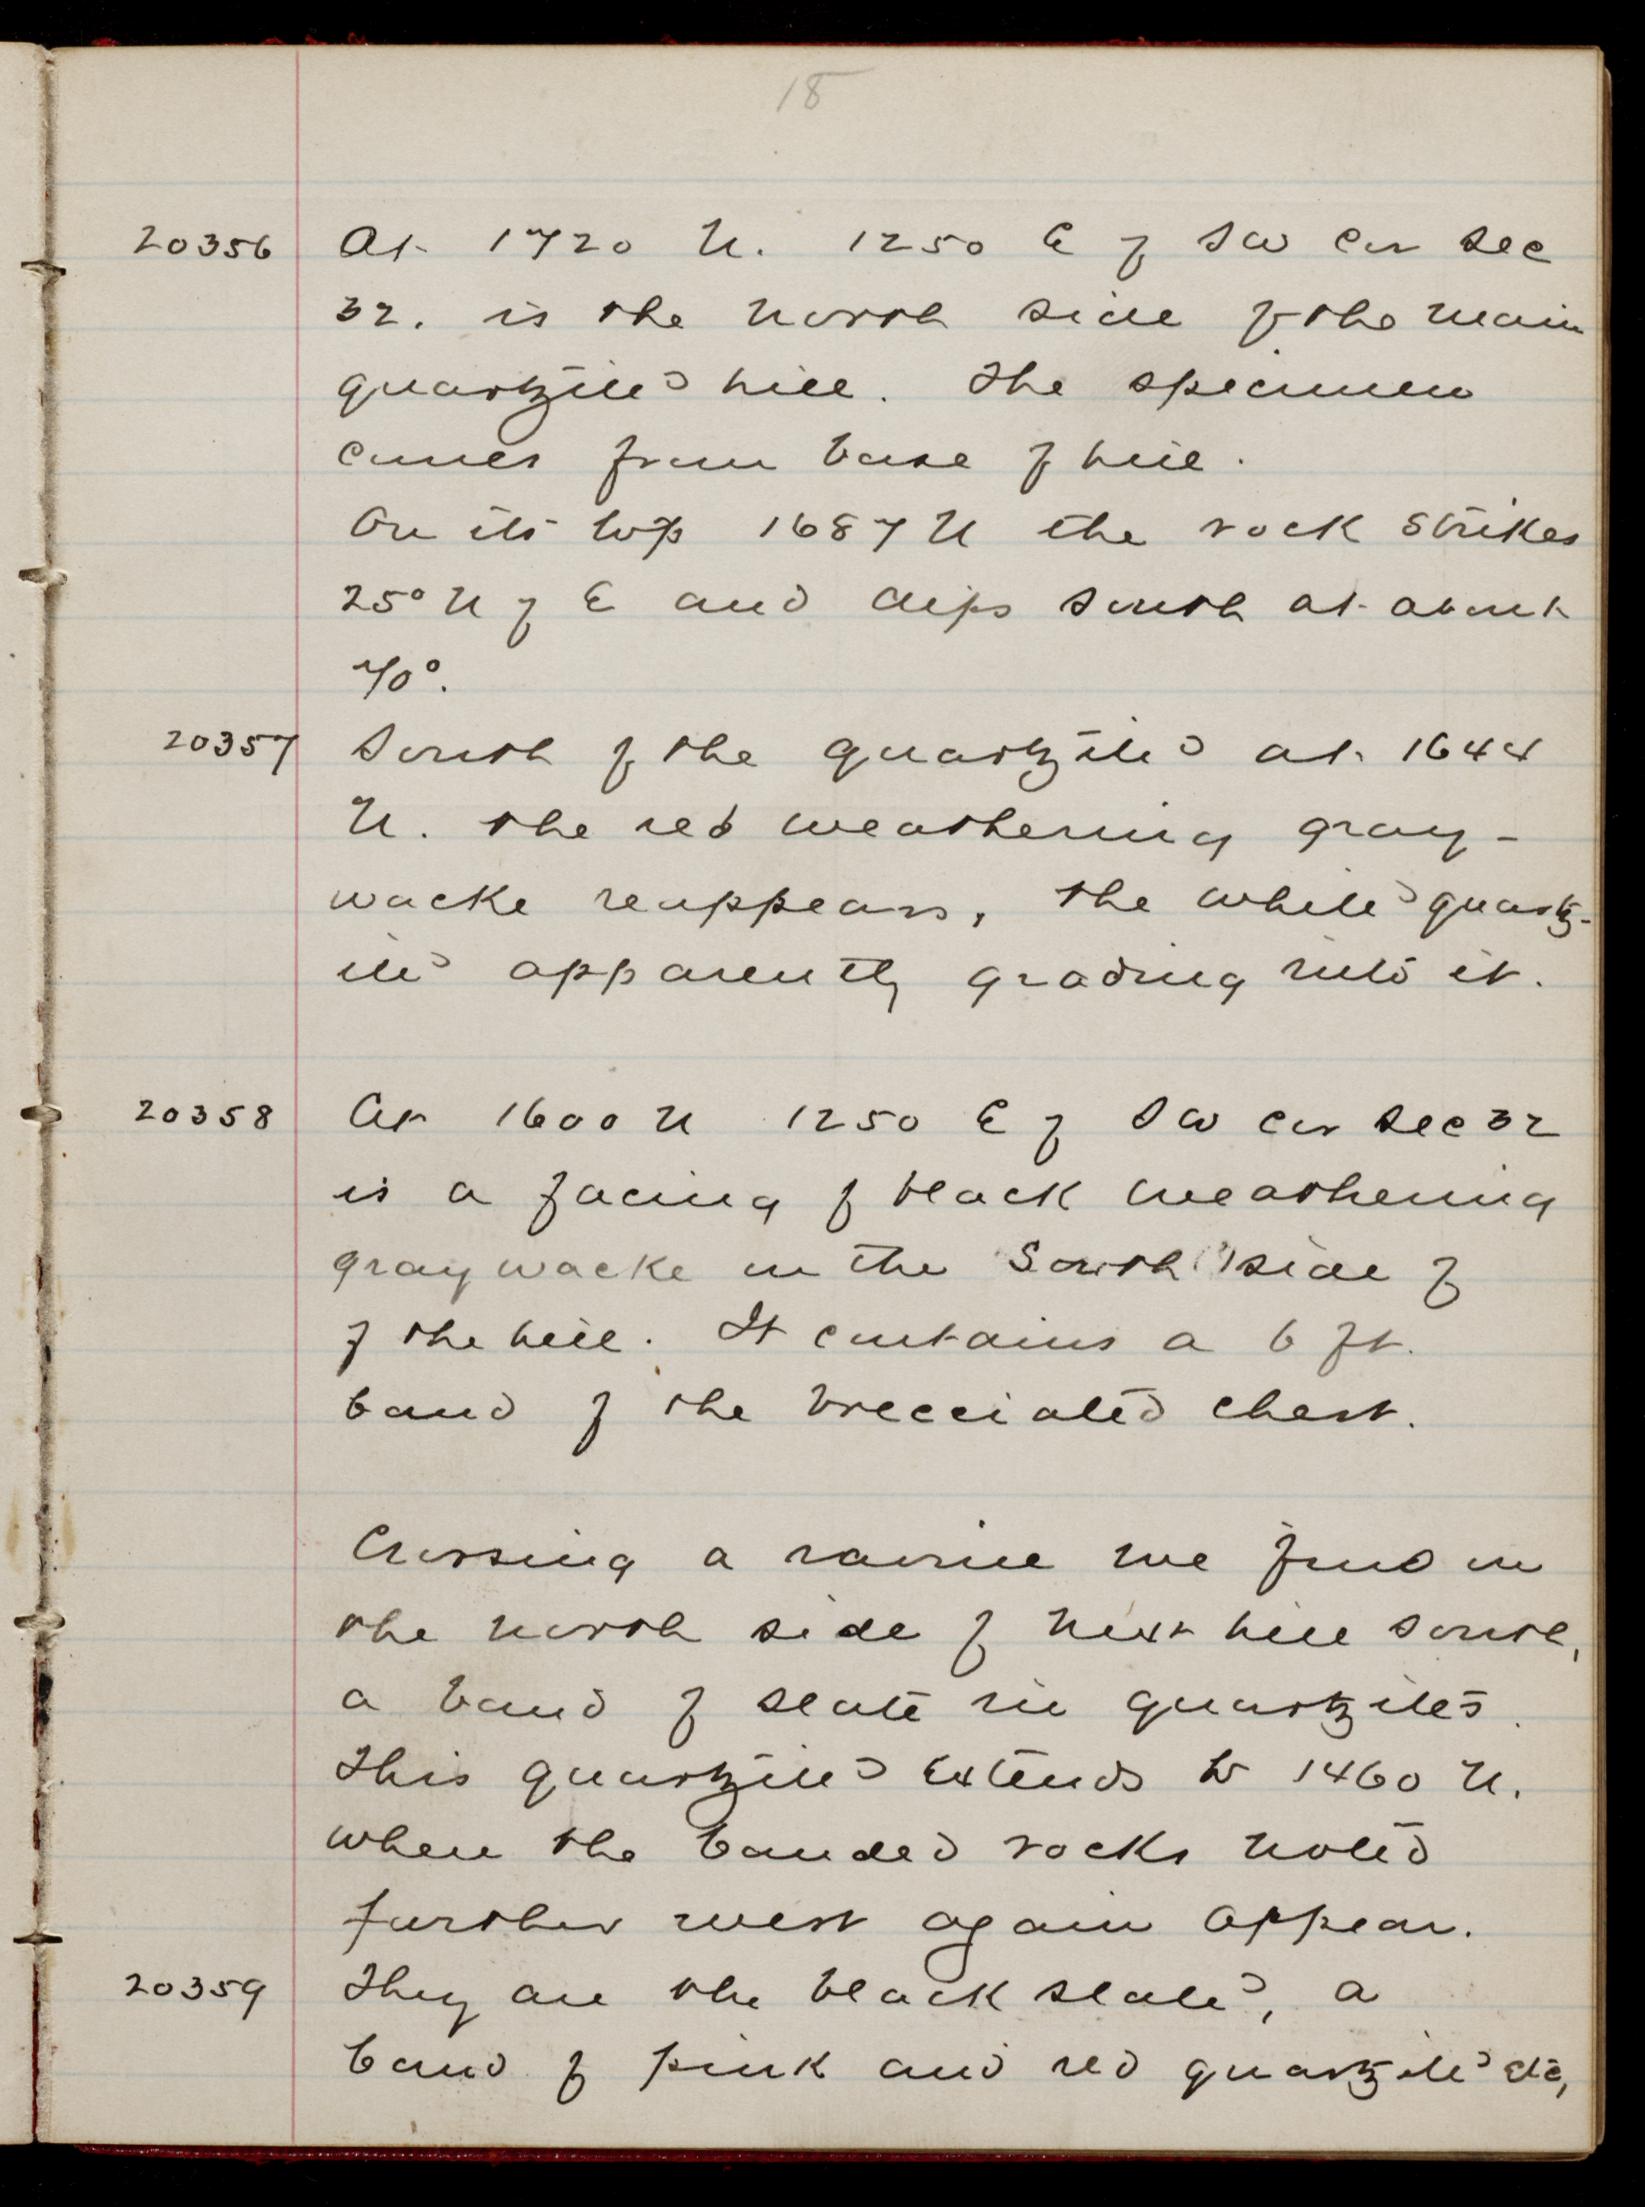 18
20356 At 1720 N. 1250 E of SW Cor Sec
32. is the North side of the main
quartzite hill. The specimen
comes from base of hill.
On its top 1687 N the rock strikes
25° N of E and dips South at about
70°.
20357 South of the quartzite at 1644
N. the red weathering gray-
wacke reappears, the white quartz-
ite apparently grading into it.
20358 At 1600 N 1250 E of SW Cor Sec 32
is a facing of black weathering
graywacke on the South side of
of the hill. It contains a 6 ft.
band of the brecciated chert.
Crossing a ravine we find on
the North side of next hill South,
a band of slate in quartzite.
This quartzite extends to 1460 N.
where the banded rocks noted
further west again appear.
20359 They are the black slate, a
band of pink and red quartzite etc,